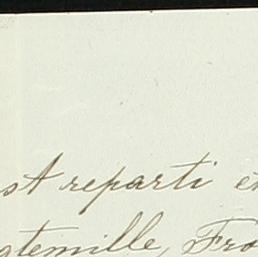 st reparti e
atemille, Fra